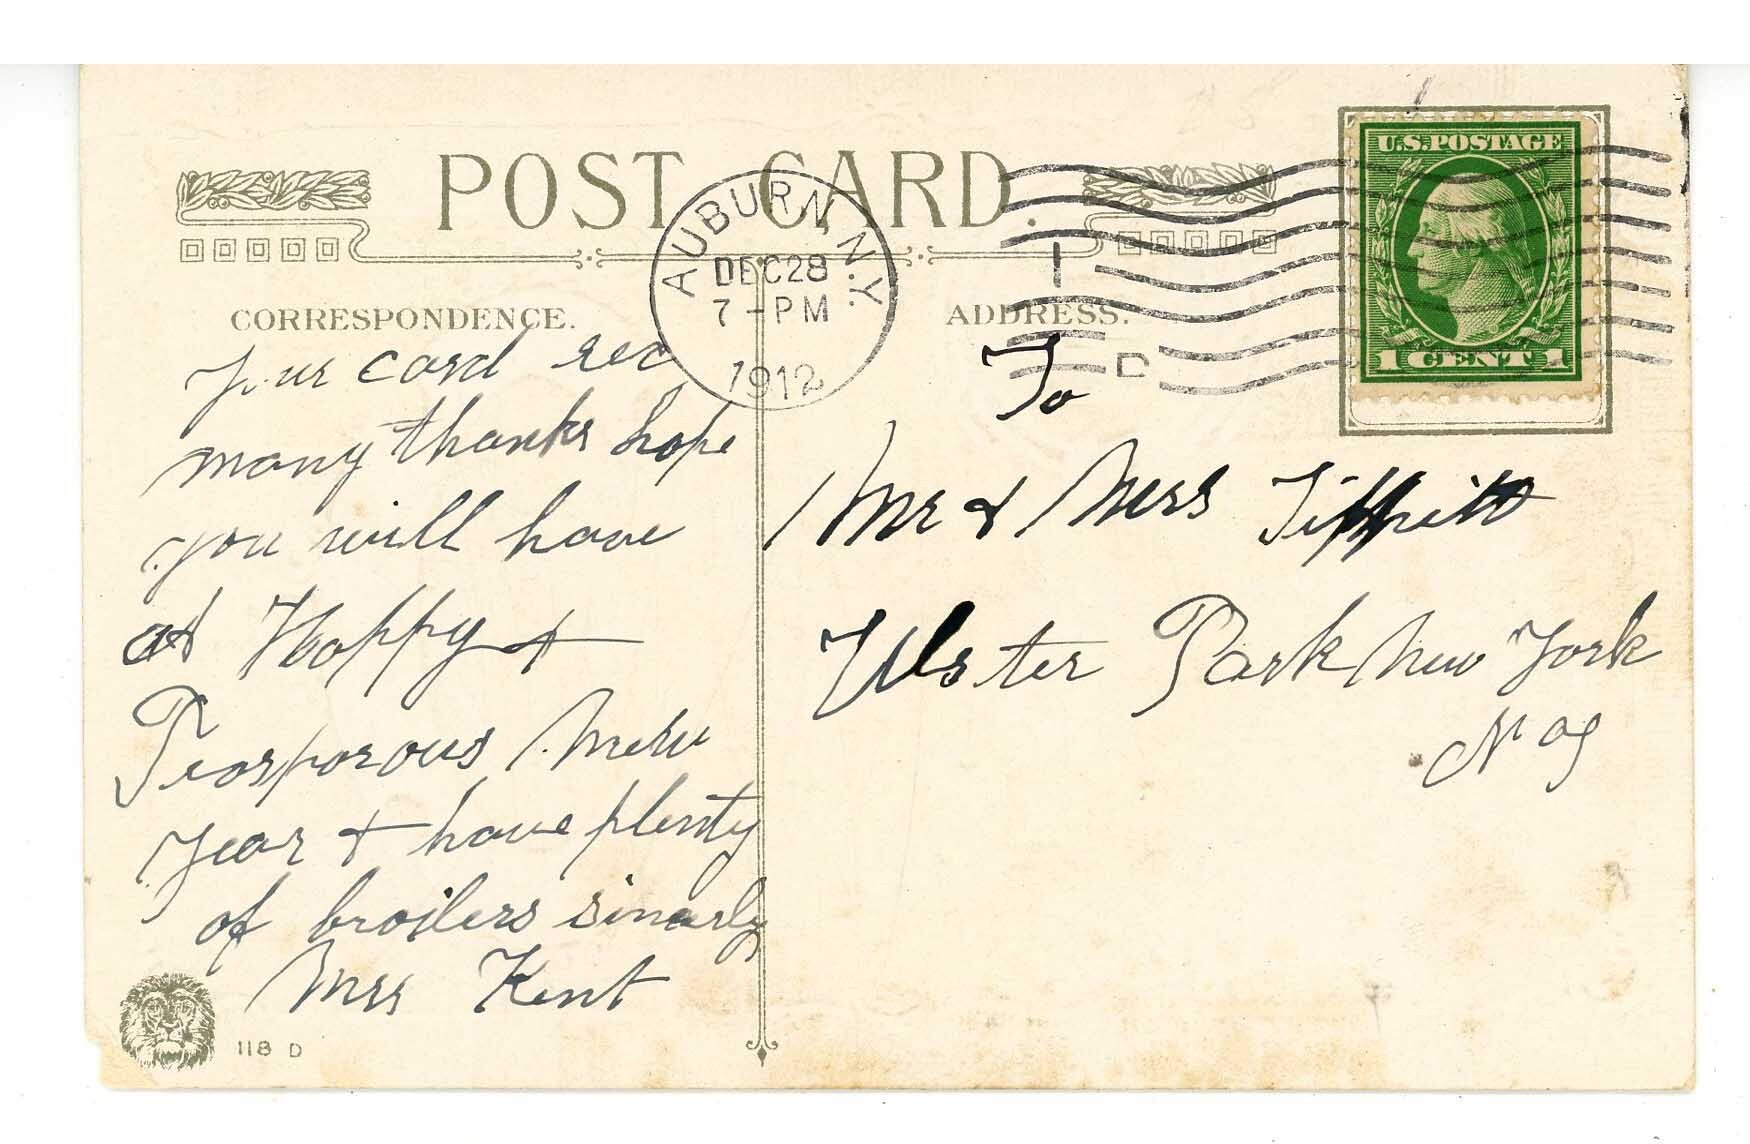 POST CARD.
AUBURN, N.Y.
DEC 28
7-PM
1912
1
D
U.S. POSTAGE
1 CENT 1
CORRESPONDENCE.
ADDRESS.
Your card rec
many thanks hope
you will have
at Happy +
Prosporous New
Year + have plenty
of broilers sincerly
Mrs Kent
To
Mr & Mrs
Ulster Park New York
118 D